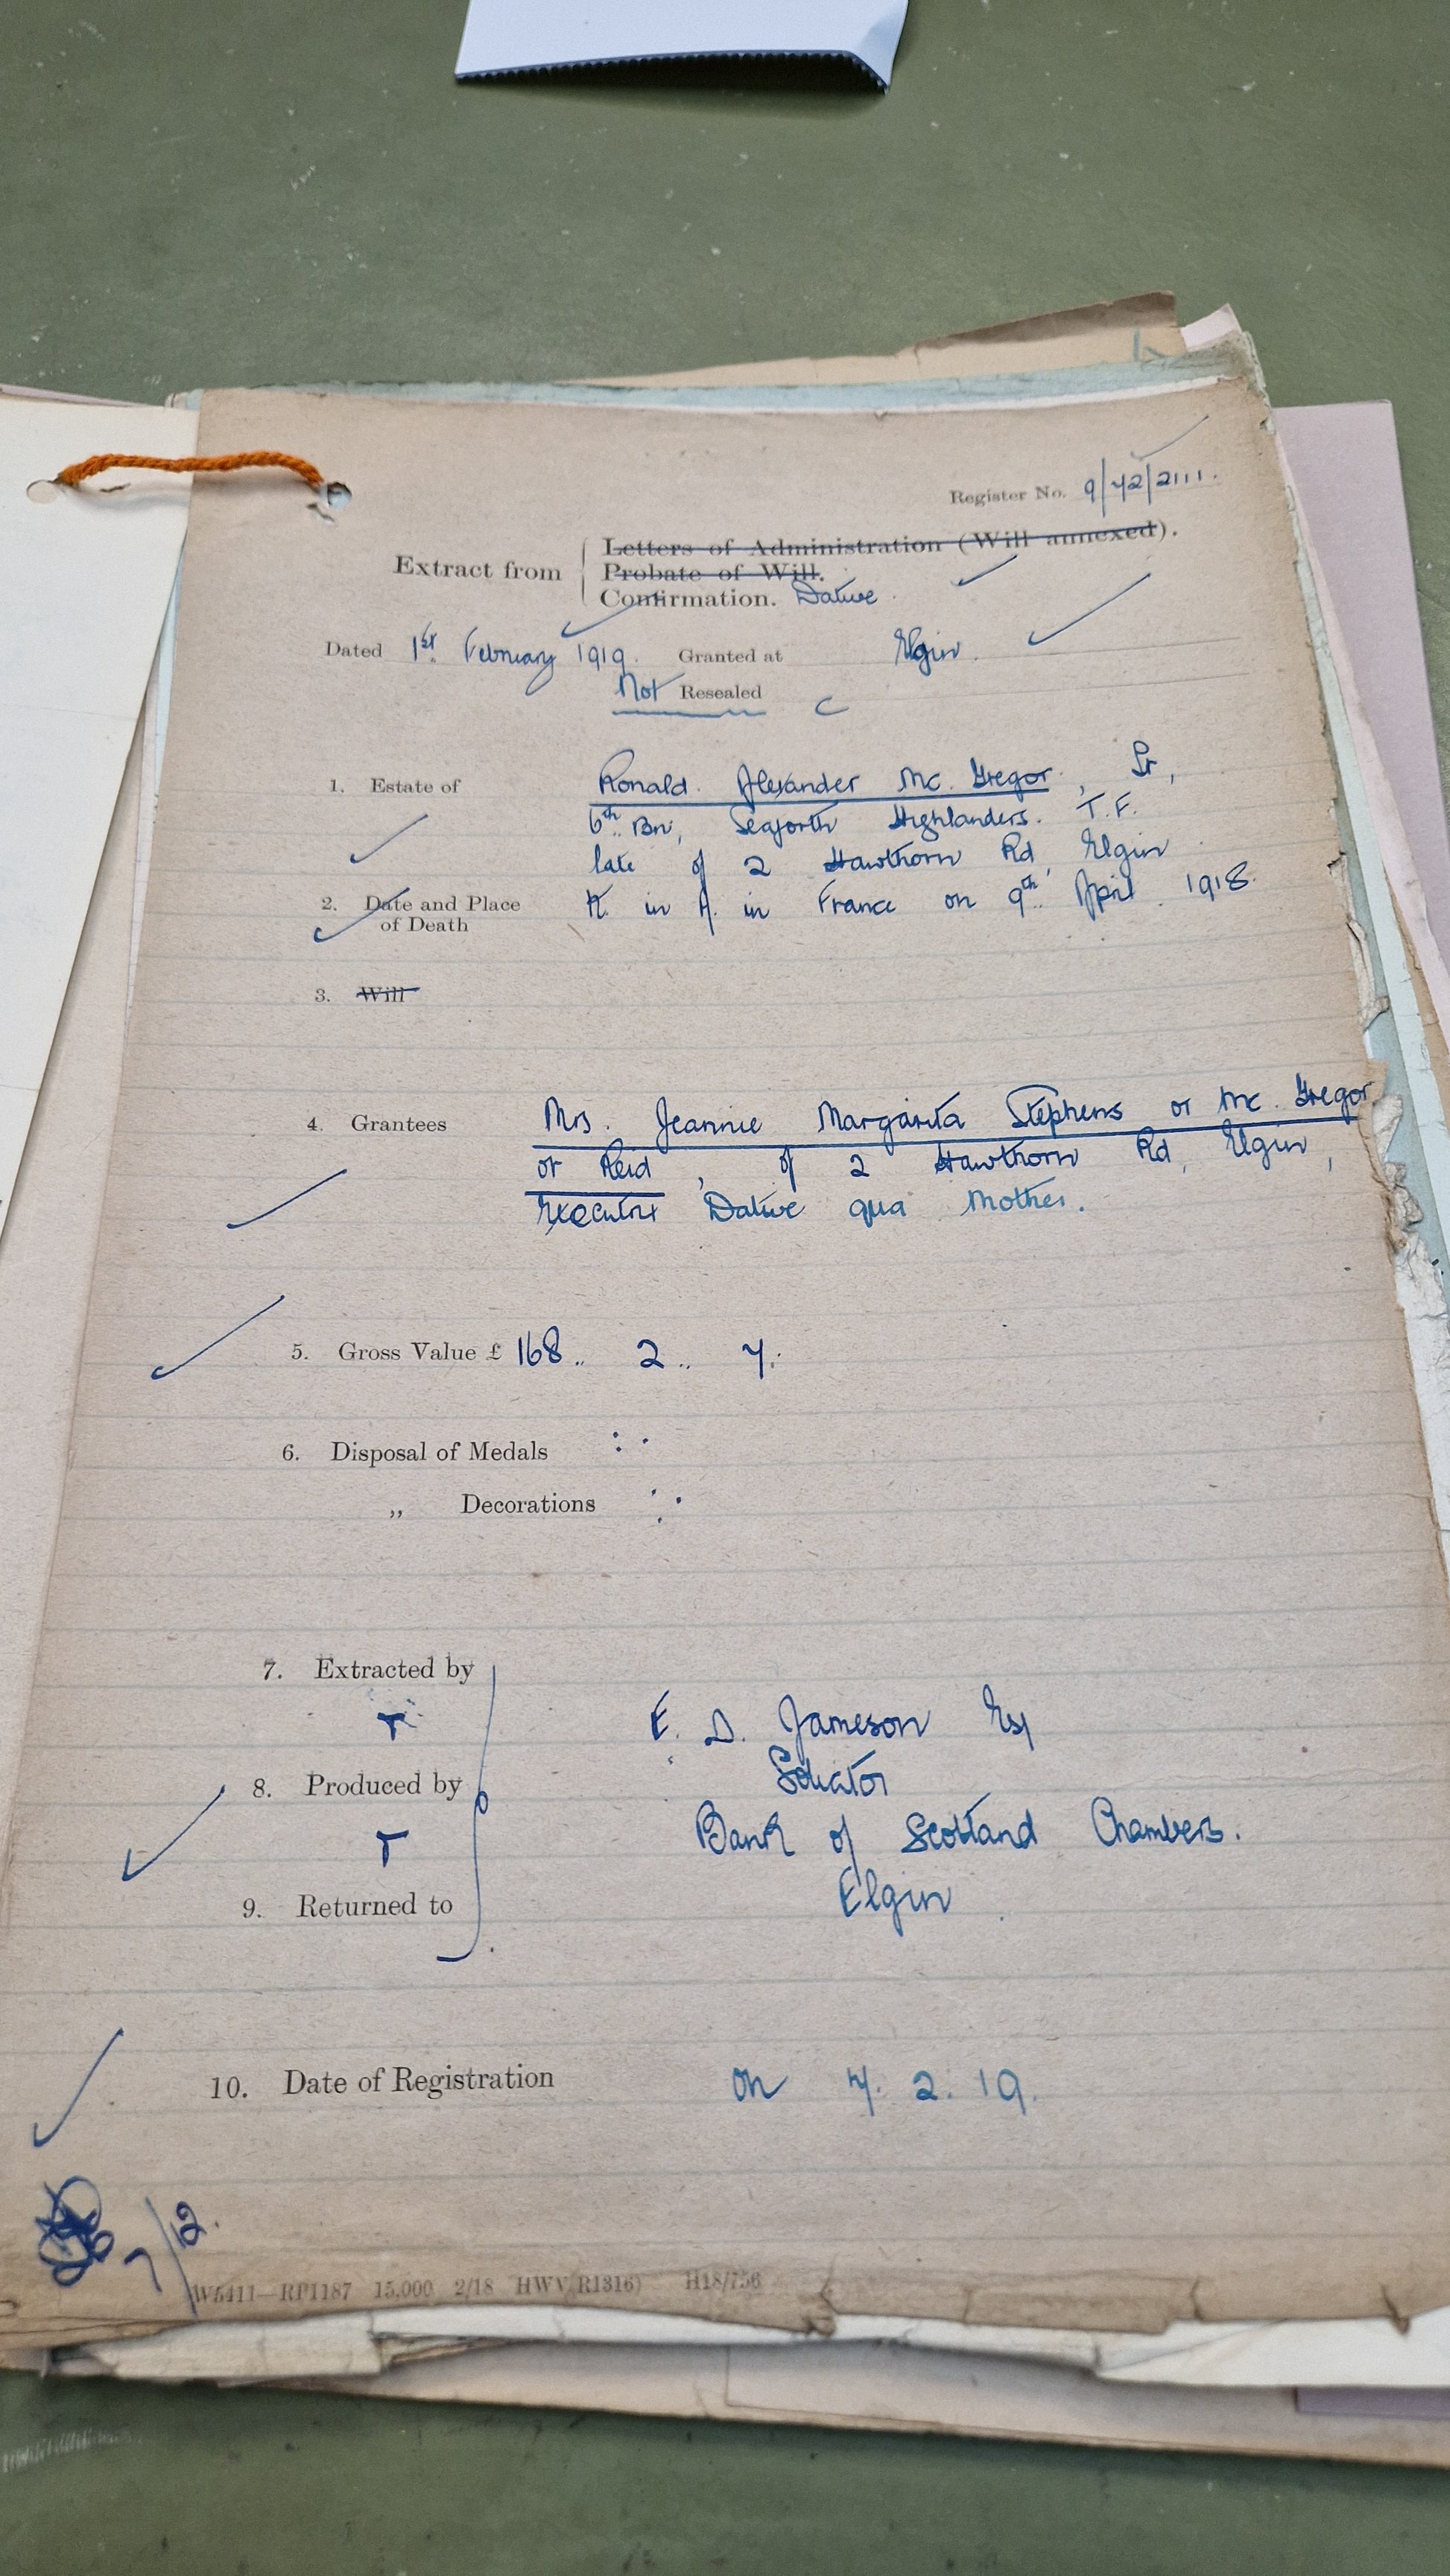 Register No. 9/42/2111.
Letters of Administration (Will annexed).
Extract from
Probate of Will.
Confirmation. Dative
Dated 1st. February 1919. Granted at Elgin.
Not Resealed
1. Estate of Ronald Alexander Mc. Gregor, Lt,
6th. Bn, Seaforth Highlanders. T.F.
late of 2 Hawthorn Rd, Elgin
2. Date and Place of Death K. in A. in France on 9th. April 1918.
3. Will
4. Grantees Mrs. Jeannie Margarita Stephens or Mc. Gregor
or Reid, of 2 Hawthorn Rd, Elgin,
Executrix Dative qua Mother.
5. Gross Value £ 168.. 2.. 7.
6. Disposal of Medals
„ Decorations
7. Extracted by
E. D. Jameson Esq
Solicitor
8. Produced by
Bank of Scotland Chambers.
Elgin
9. Returned to
10. Date of Registration on 7. 2. 19.
7/2.
W5411—RP1187 15,000 2/18 HWV(R1316) H18/756